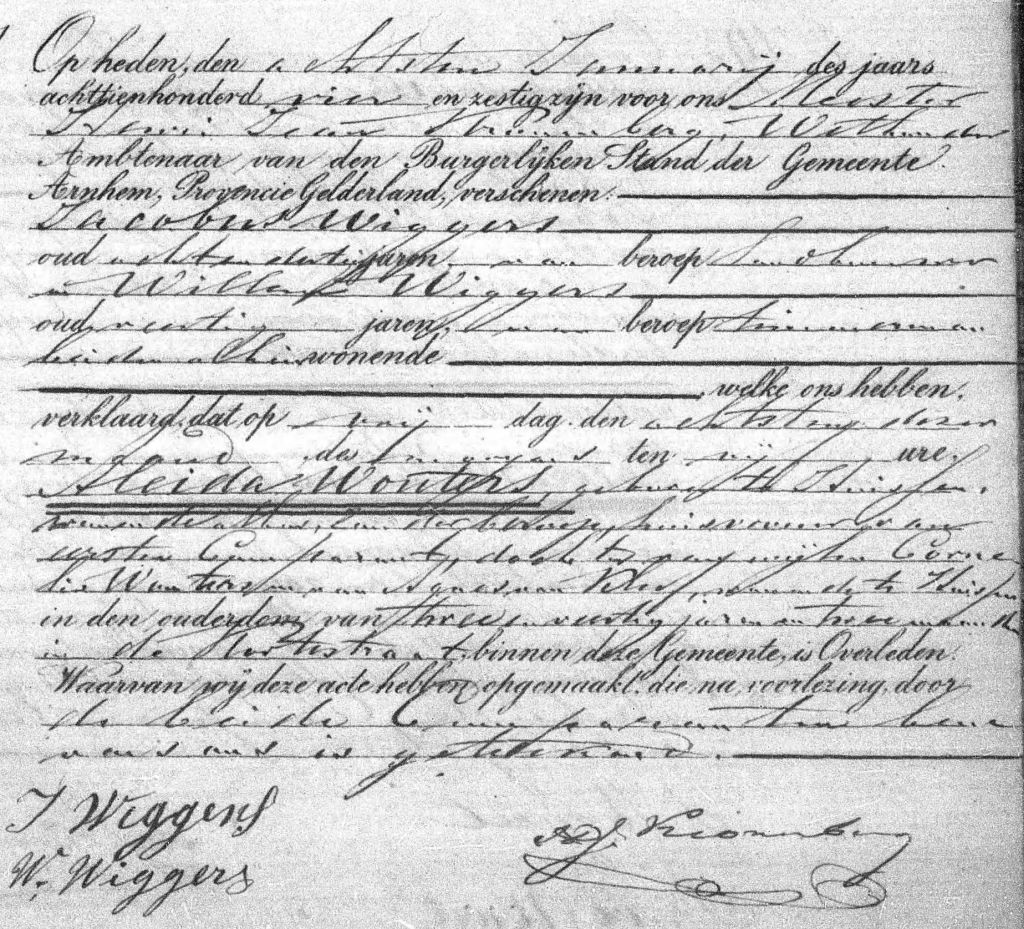 Op heden, den achtsten Januarij des jaars
achttienhonderd vier en zestig zijn voor ons Meester
Jean Kronenberg, Wethouder
Ambtenaar van den Burgerlijken Stand der Gemeente
Arnhem, Provincie Gelderland, verschenen:
Jacobus Wiggers
oud acht en dertig jaren, van beroep
en Willem Wiggers
oud veertig jaren, van beroep timmerman
beiden alhier wonende
welke ons hebben
verklaard, dat op vrij dag den achtsten dezer
maand des ten ure,
Aleida Wouters, geboren te Huissen,
wonende alhier, zonder beroep, huisvrouw van
eersten Comparant, dochter van wijlen Corne
lis Wouters en van Agnes van, wonende te Huissen
in den ouderdom van twee en veertig jaren en twee maanden
in de straat, binnen deze Gemeente, is Overleden.
Waarvan wij deze acte hebben opgemaakt, die na voorlezing, door
de beide Comparanten bene
vens ons is geteekend.
J Wiggers
W. Wiggers
Kronenberg